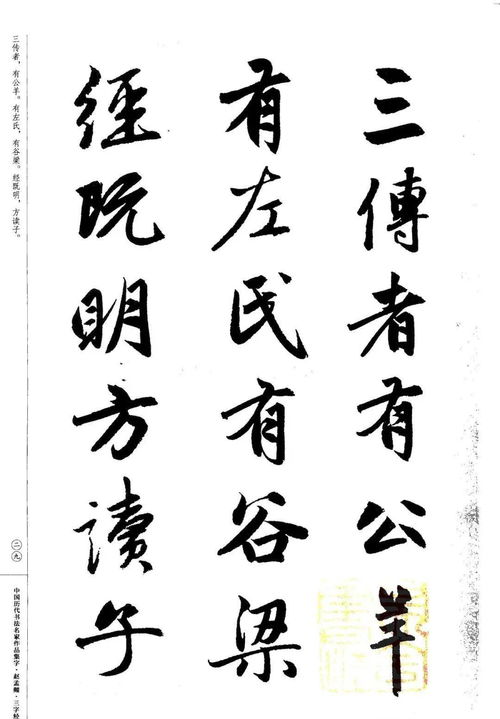 三傳者有公羊
有左氏有谷梁
經既明方讀子
三传者，有公羊。有左氏，有谷梁。经既明，方读子。
二九
中国历代书法名家作品集字·赵孟頫·三字经